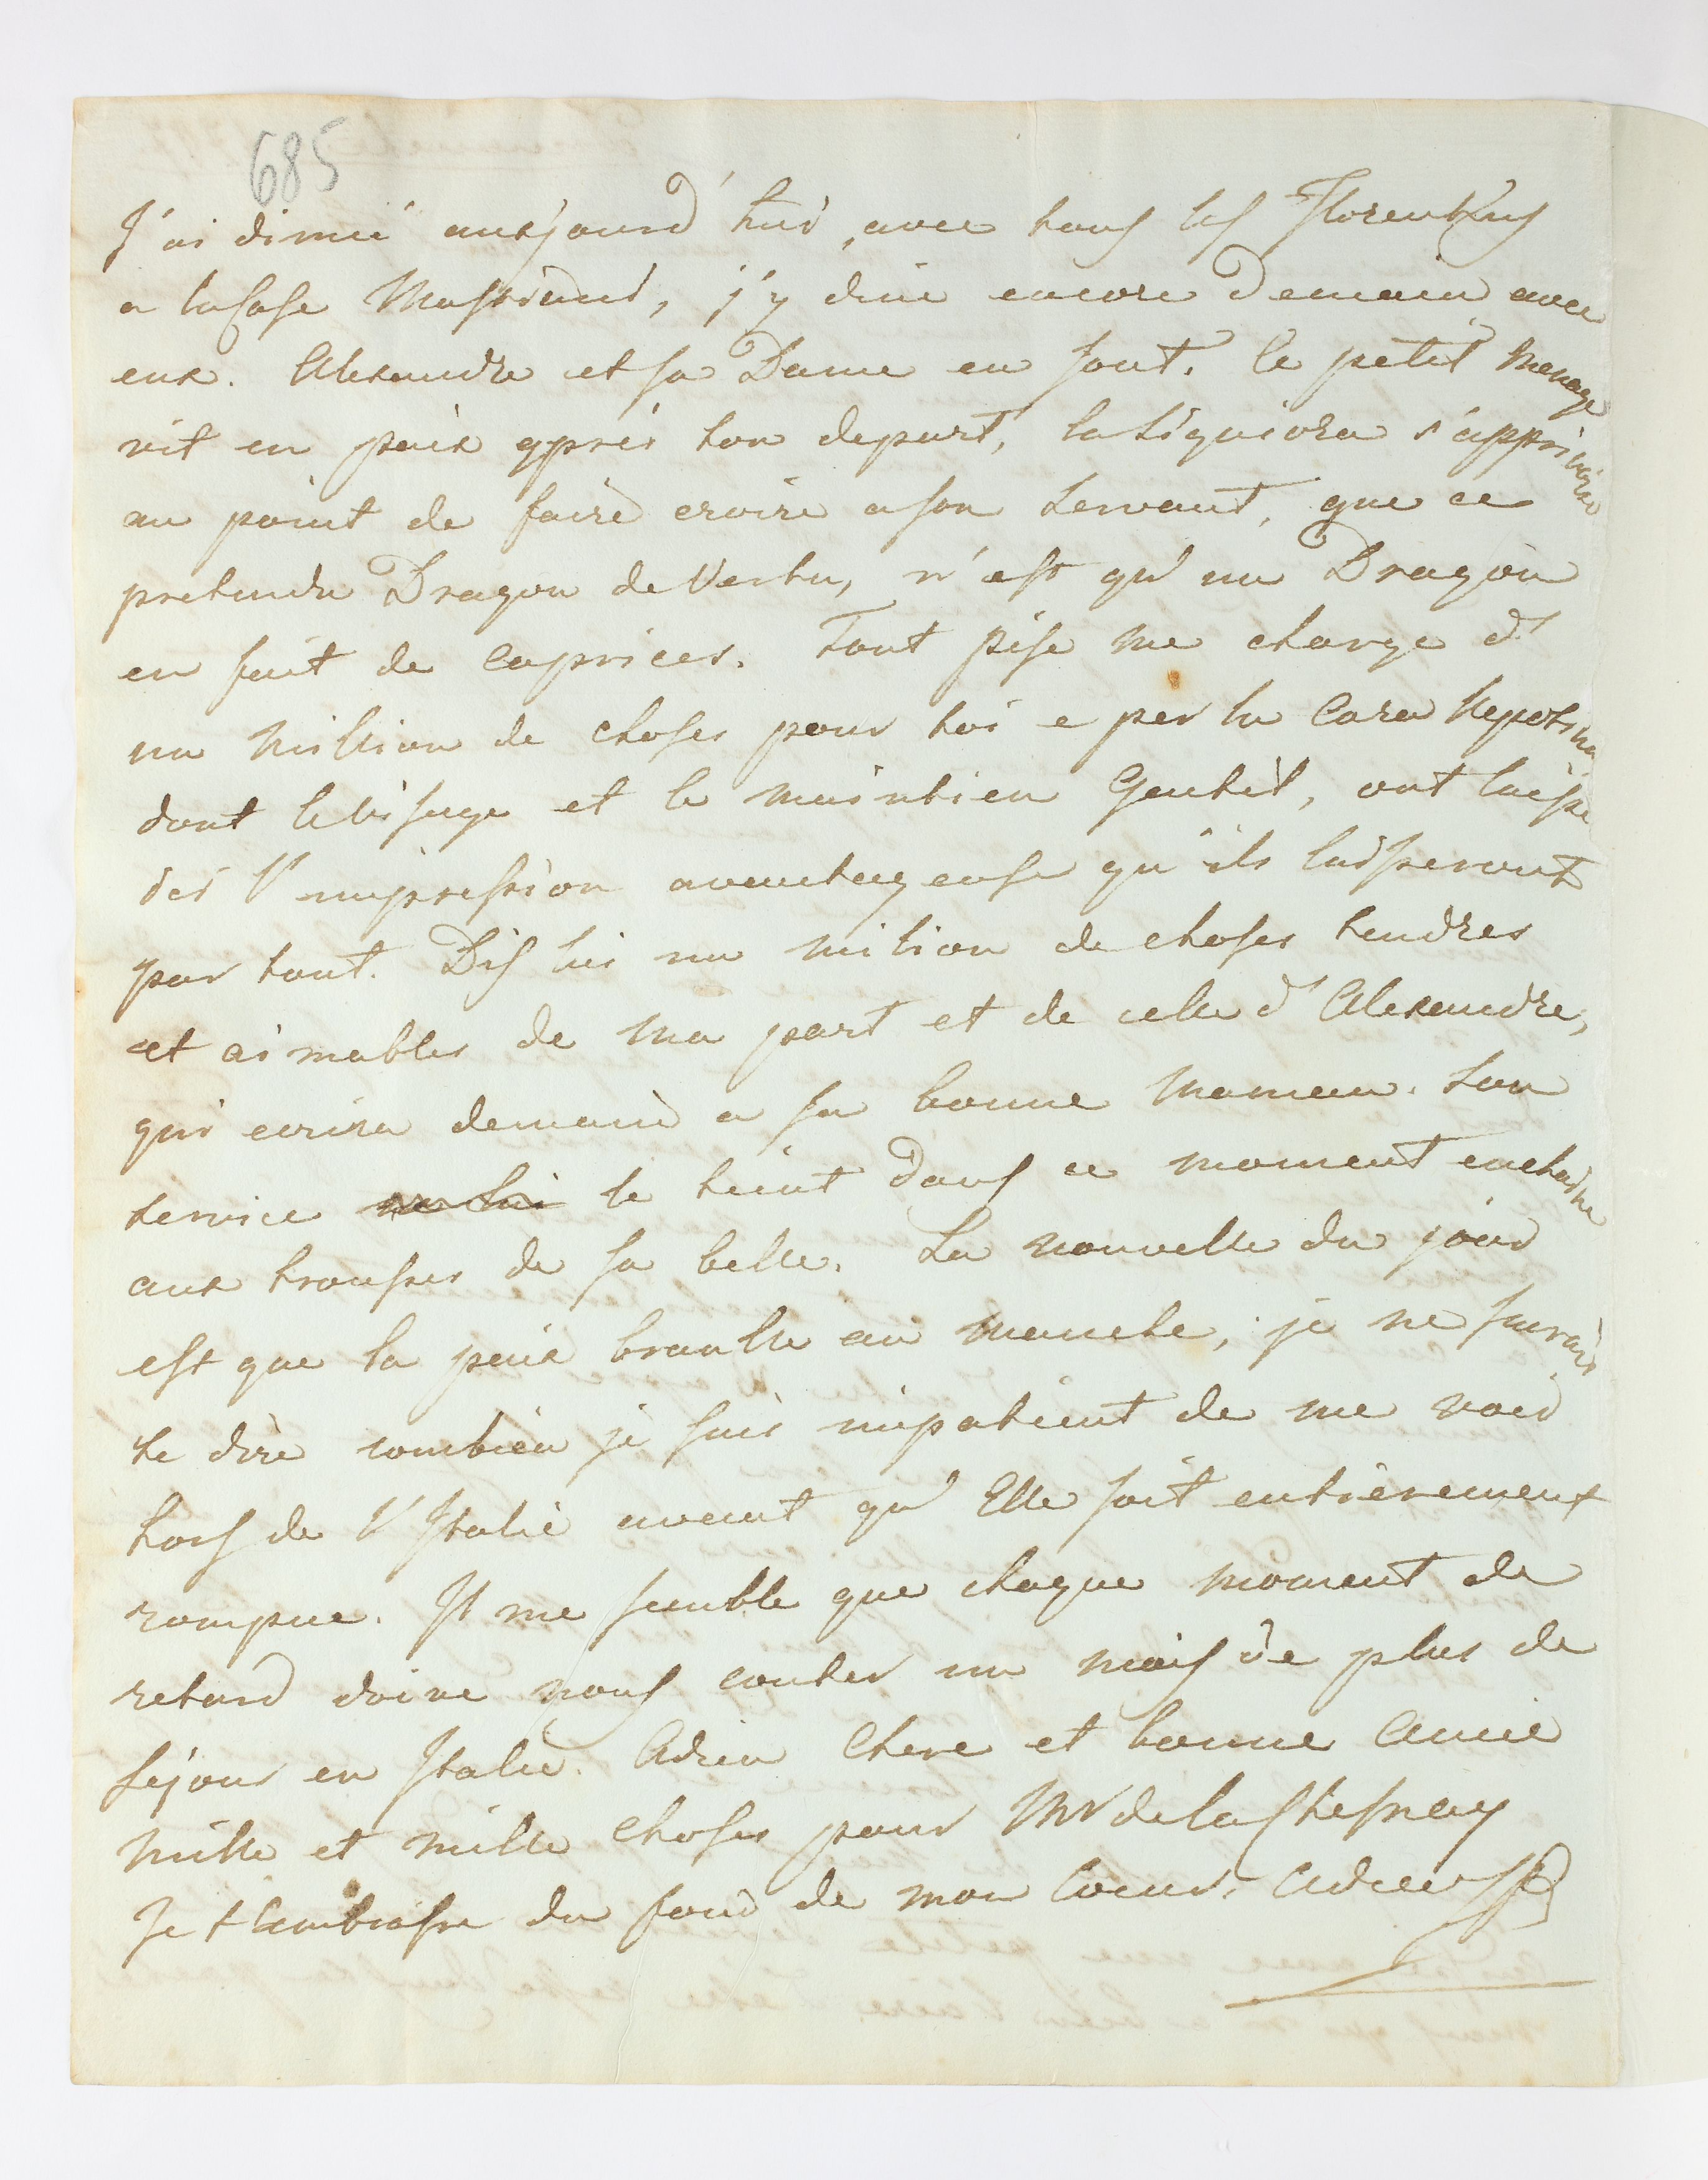 685
J'ai dinné aujourd'hui, avec tous les Florentins
a la Case Mastiani, j'y dine encore Demain avec
eux. Alexandre et sa Dame en sont. le petit menage
vit en paix apprés ton depart, la Signiora s'apprivoise
au point de faire croire a son servant, que ce
pretendu Dragon de Vertu, n'est qu'un Dragon
en fait de caprices. Tout Pise me charge d'
un million de choses pour toi e per la Cara Nepotina
dont le visage et le maintien Gentil, ont laissé
ici l'impression avantageuse qu'ils laisseront
par tout. Dis lui un milion de choses tendres
et aimables de ma part et de celle d'Alexandre,
qui ecrira demain a sa bonne Maman. Son
service le tient dans ce moment enchainé
aux trousses de sa belle. La nouvelle du jour
est que la paix branlle au manche, je ne saurais
te dire combien je suis impatient de me voir
hors de l'Italie avant qu'Elle soit entièrement
rompue. Il me semble que chaque moment de
retard doive nous couter un mois de plus de
séjour en Italie. Adieu Chere et bonne Amie
mille et mille choses pour Mr de las Chesnay
Je t'embrasse du fond de mon Coeur. Adieu